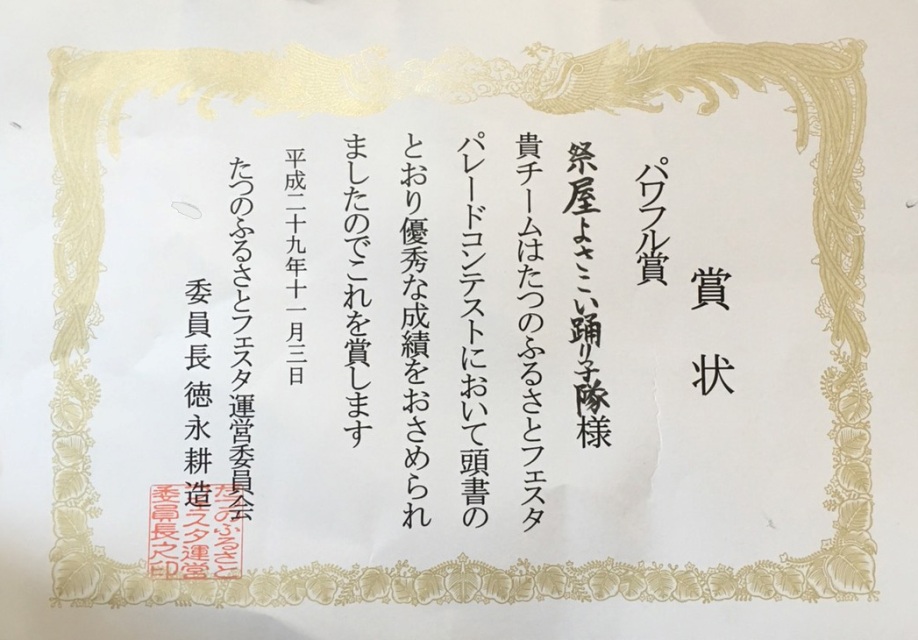 賞状
パワフル賞
祭屋よさこい踊り子隊様
貴チームはたつのふるさとフェスタ
パレードコンテストにおいて頭書の
とおり優秀な成績をおさめられ
ましたのでこれを賞します
平成二十九年十一月三日
たつのふるさとフェスタ運営委員会
委員長徳永耕造
たつのふるさと
フェスタ運営
委員長之印